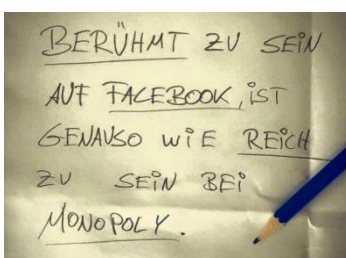 BERÜHMT ZU SEIN
AUF FACEBOOK, IST
GENAUSO WIE REICH
ZU SEIN BEI
MONOPOLY.